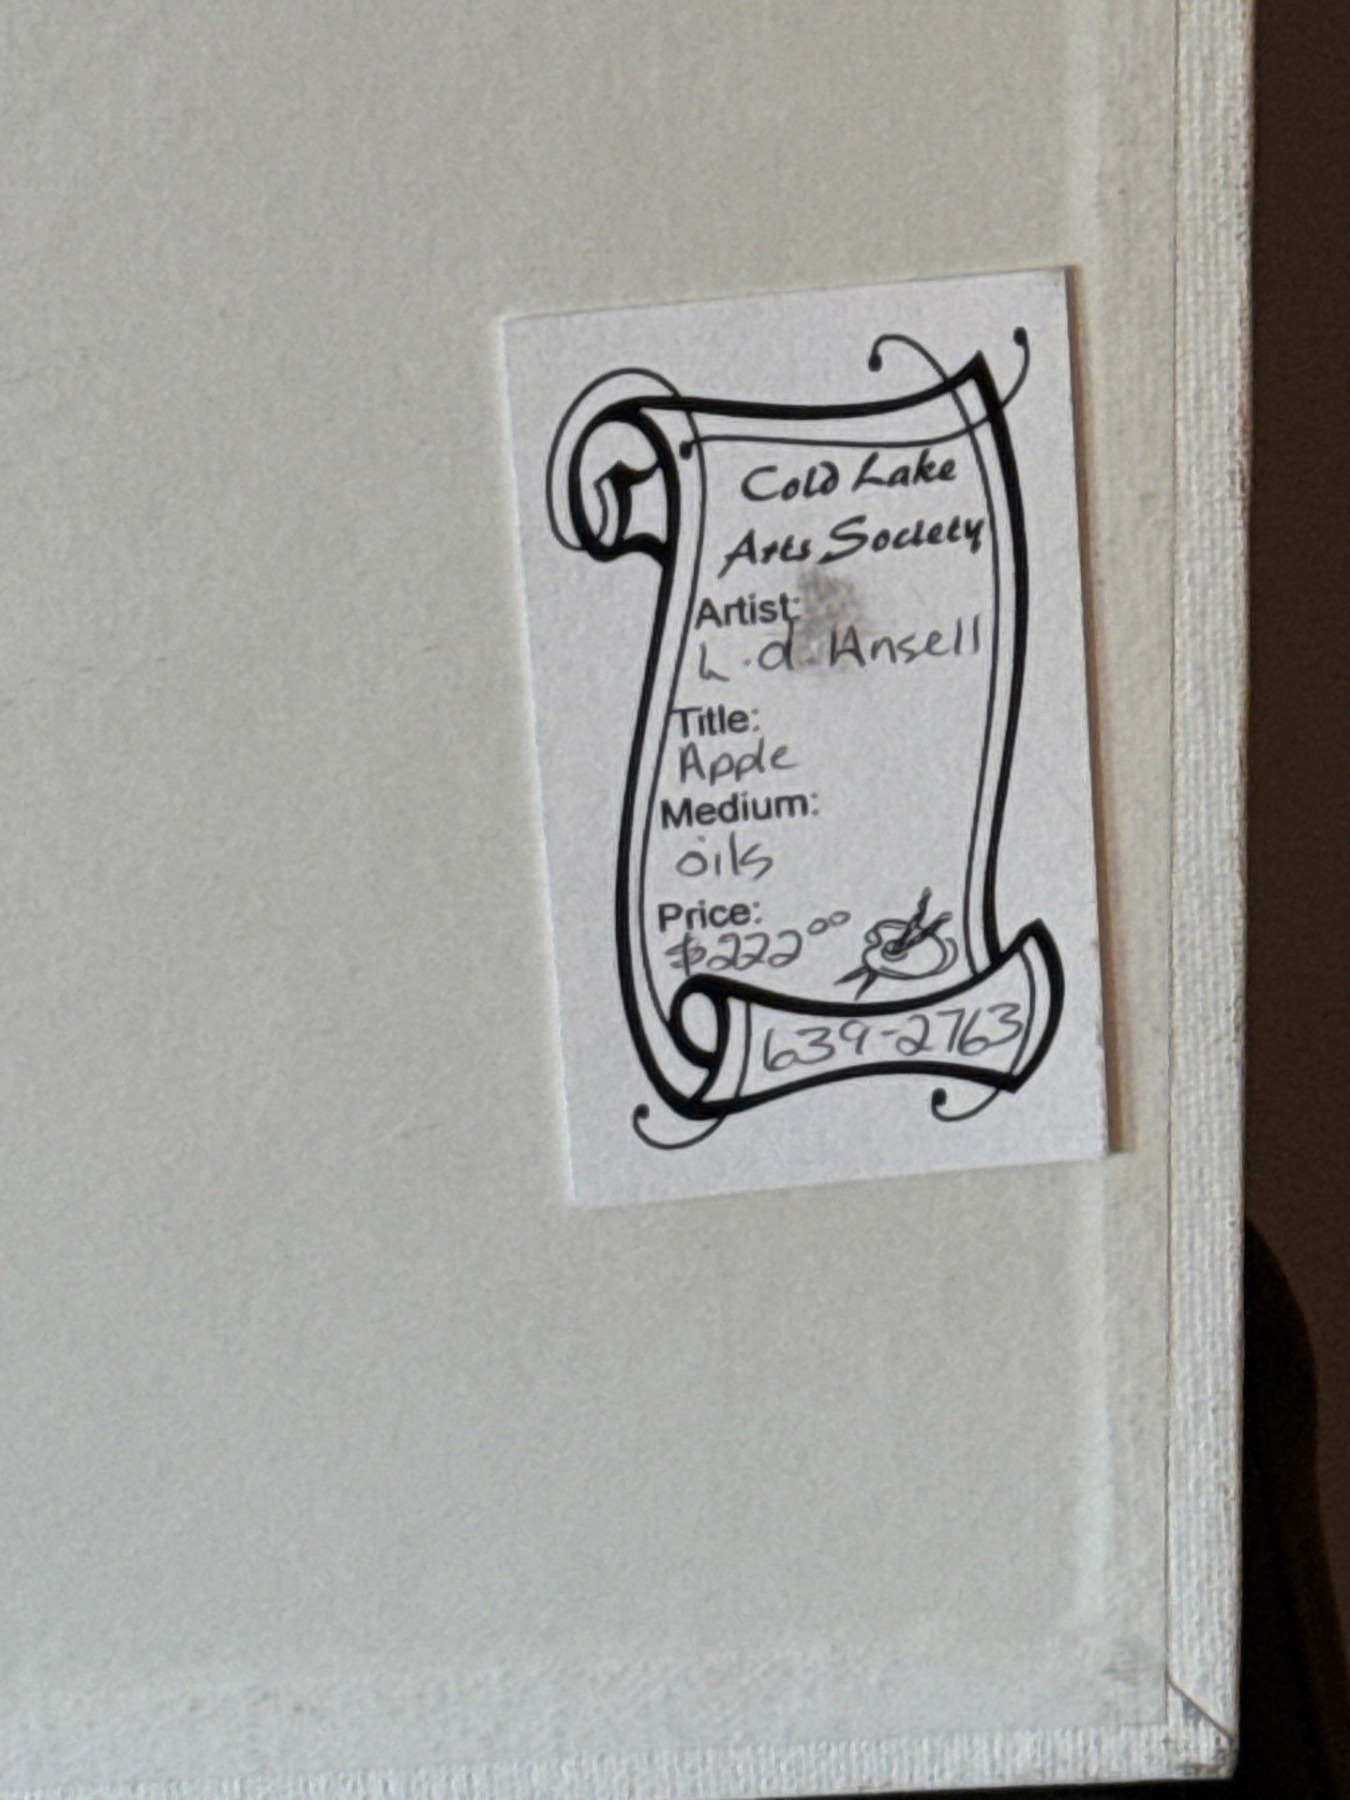 Cold Lake
Arts Society
Artist:
L.d. Ansell
Title:
Apple
Medium:
oils
Price:
$222.00
639-2763